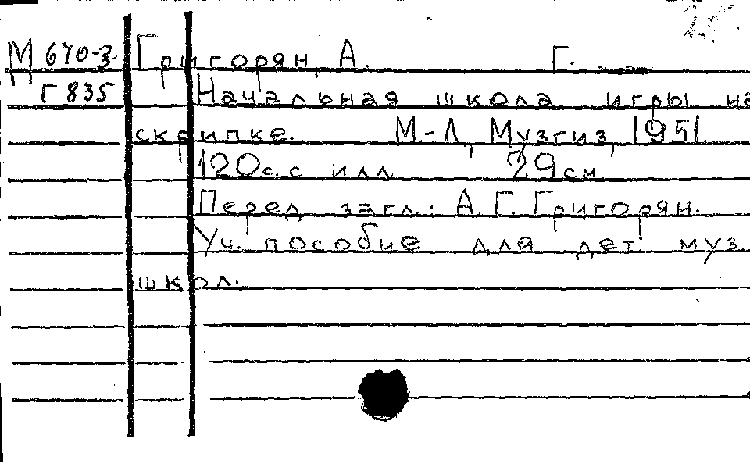 М 670-3 Григорян, А. Г.
Г 835 Начальная школа игры на
скрипке. М-Л, Музгиз, 1951
120с. с илл. 29см
Перед загл.: А. Г. Григорян.
Уч. пособие для дет. муз.
школ.